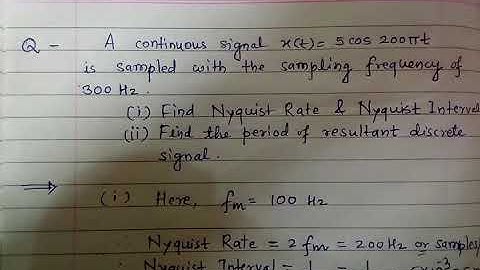 Q - A continuous signal x(t) = 5 cos 200πt
is sampled with the sampling frequency of
300 Hz.
(i) Find Nyquist Rate & Nyquist Interval
(ii) Find the period of resultant discrete
signal.
⟹ (i) Here, fm = 100 Hz
∴ Nyquist Rate = 2 fm = 200 Hz or samples/
Nyquist Interval = 1